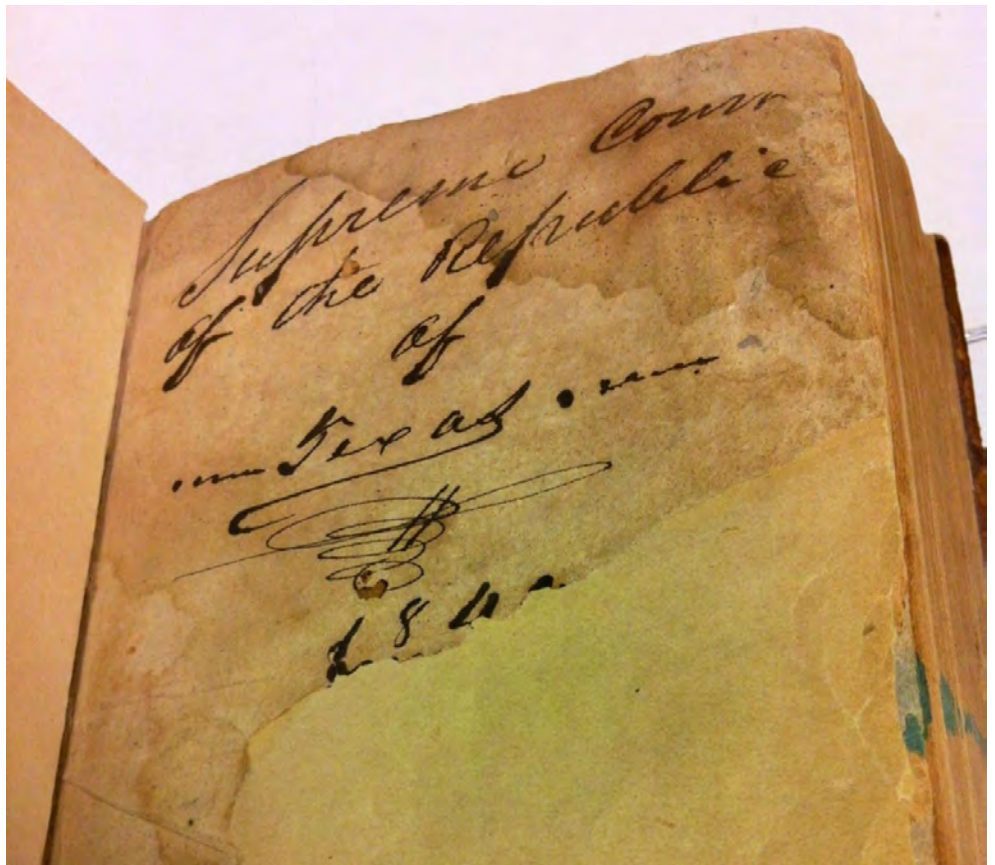 Supreme Cour
of the Republic
of
Texas
184